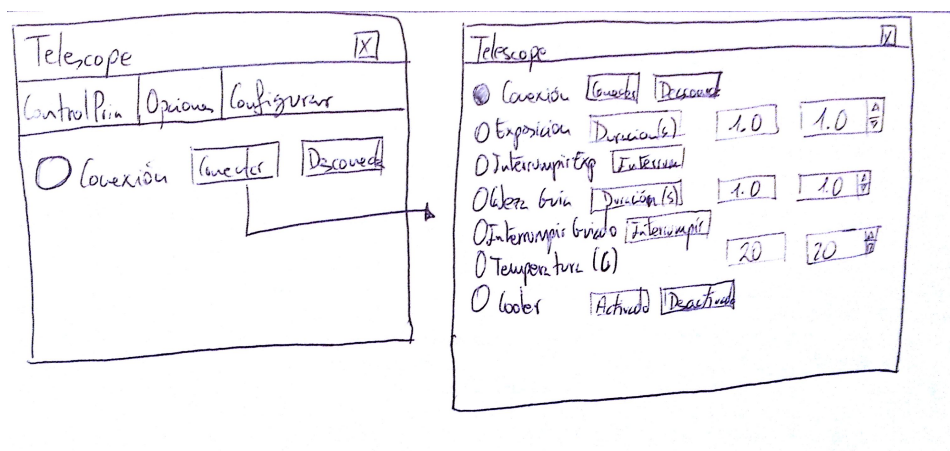 Telescope X
Control Prin Opciones Configurar
Conexión Conectar Desconecta
Telescope X
Conexión Conectar Desconect
Exposicion Duracion(s) 1.0 1.0
Interrumpir Exp Interrum
Guia Duración(s) 1.0 1.0
Interrumpir Guiado Interrumpir
Temperatura (C) 20 20
Cooler Activado Desactivado